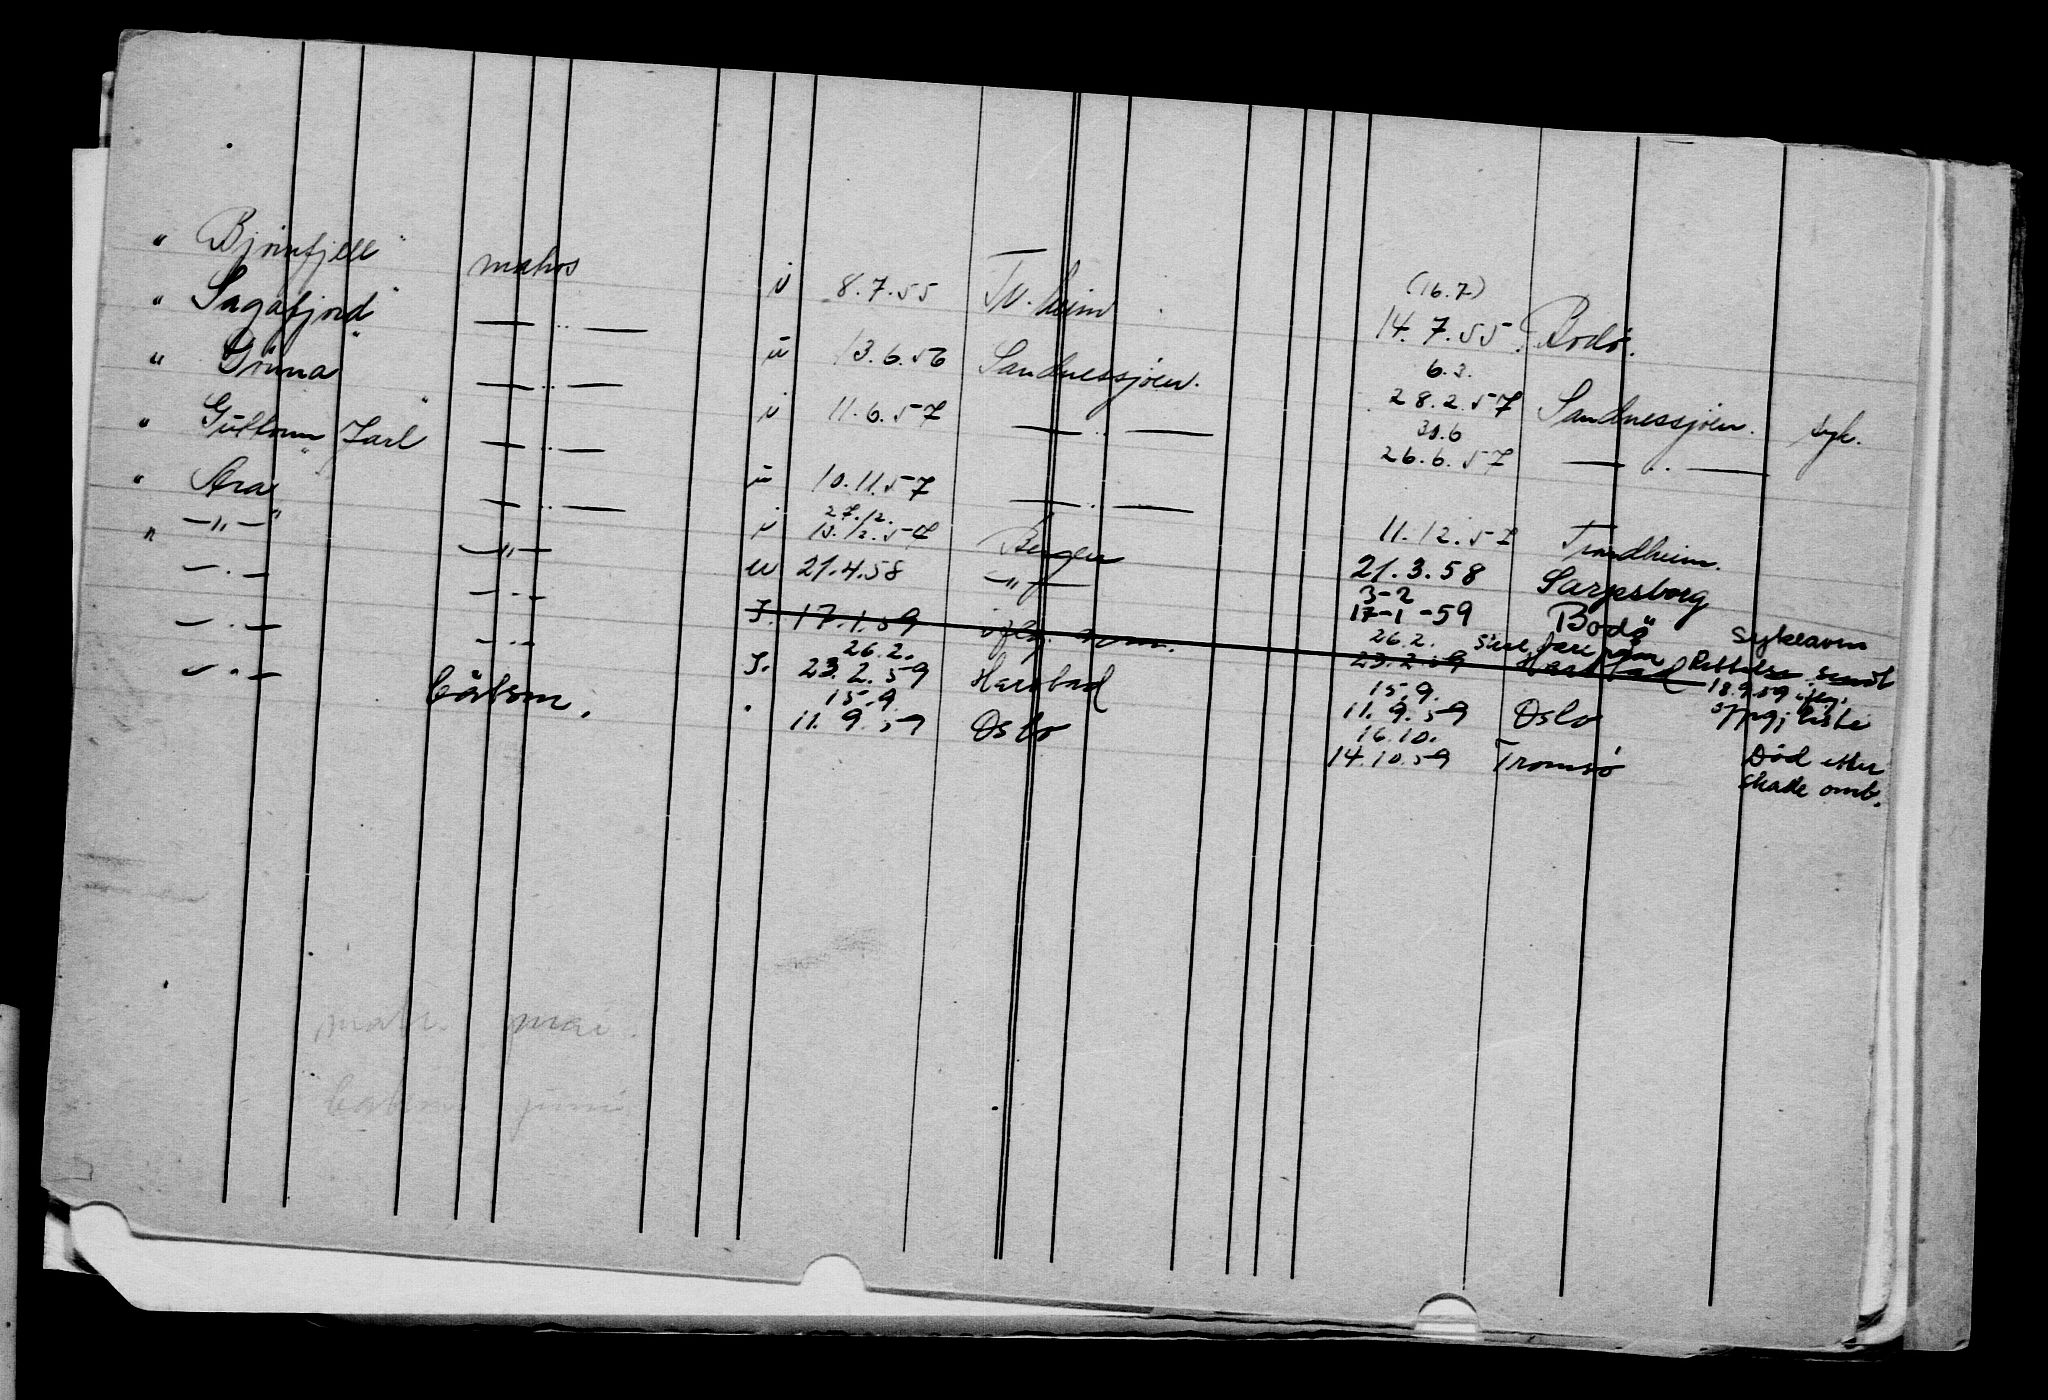 " Bjørnfjell " matros i 8.7.55 Tr.heim (16.7) 14.7.55 Bodø.
" Sagafjord " — .. — u 13.6.56 Sandnessjøen. 6.3. 28.2.57 Sandnessjøen. syk.
" Dönna " — .. — i 11.6.57 — .. — 30.6 26.6.57 — .. —
" Guttorm Jarl " — .. — u 10.11.57 — .. — 11.12.57 Trondheim.
" Ara " — .. — i 27.12. 13.12.57 Bergen 21.3.58 Sarpsborg
" — " — " — " — u 21.4.58 — " — 3-2 17-1-59 Bodö sykeavm
— . — — . . — I. 17.1.59 26.2. 23.2.59 Harstad Rettelse sendt 18.9.59
— . — — . . — I. 26.2. 23.2.59 Harstad 15.9. 11.9.59 Oslo oppgj liste
— " — båtsm. . 15.9. 11.9.59 Oslo 16.10. 14.10.59 Tromsö Död etter
skade omb.
matr. mai
båtsm juni